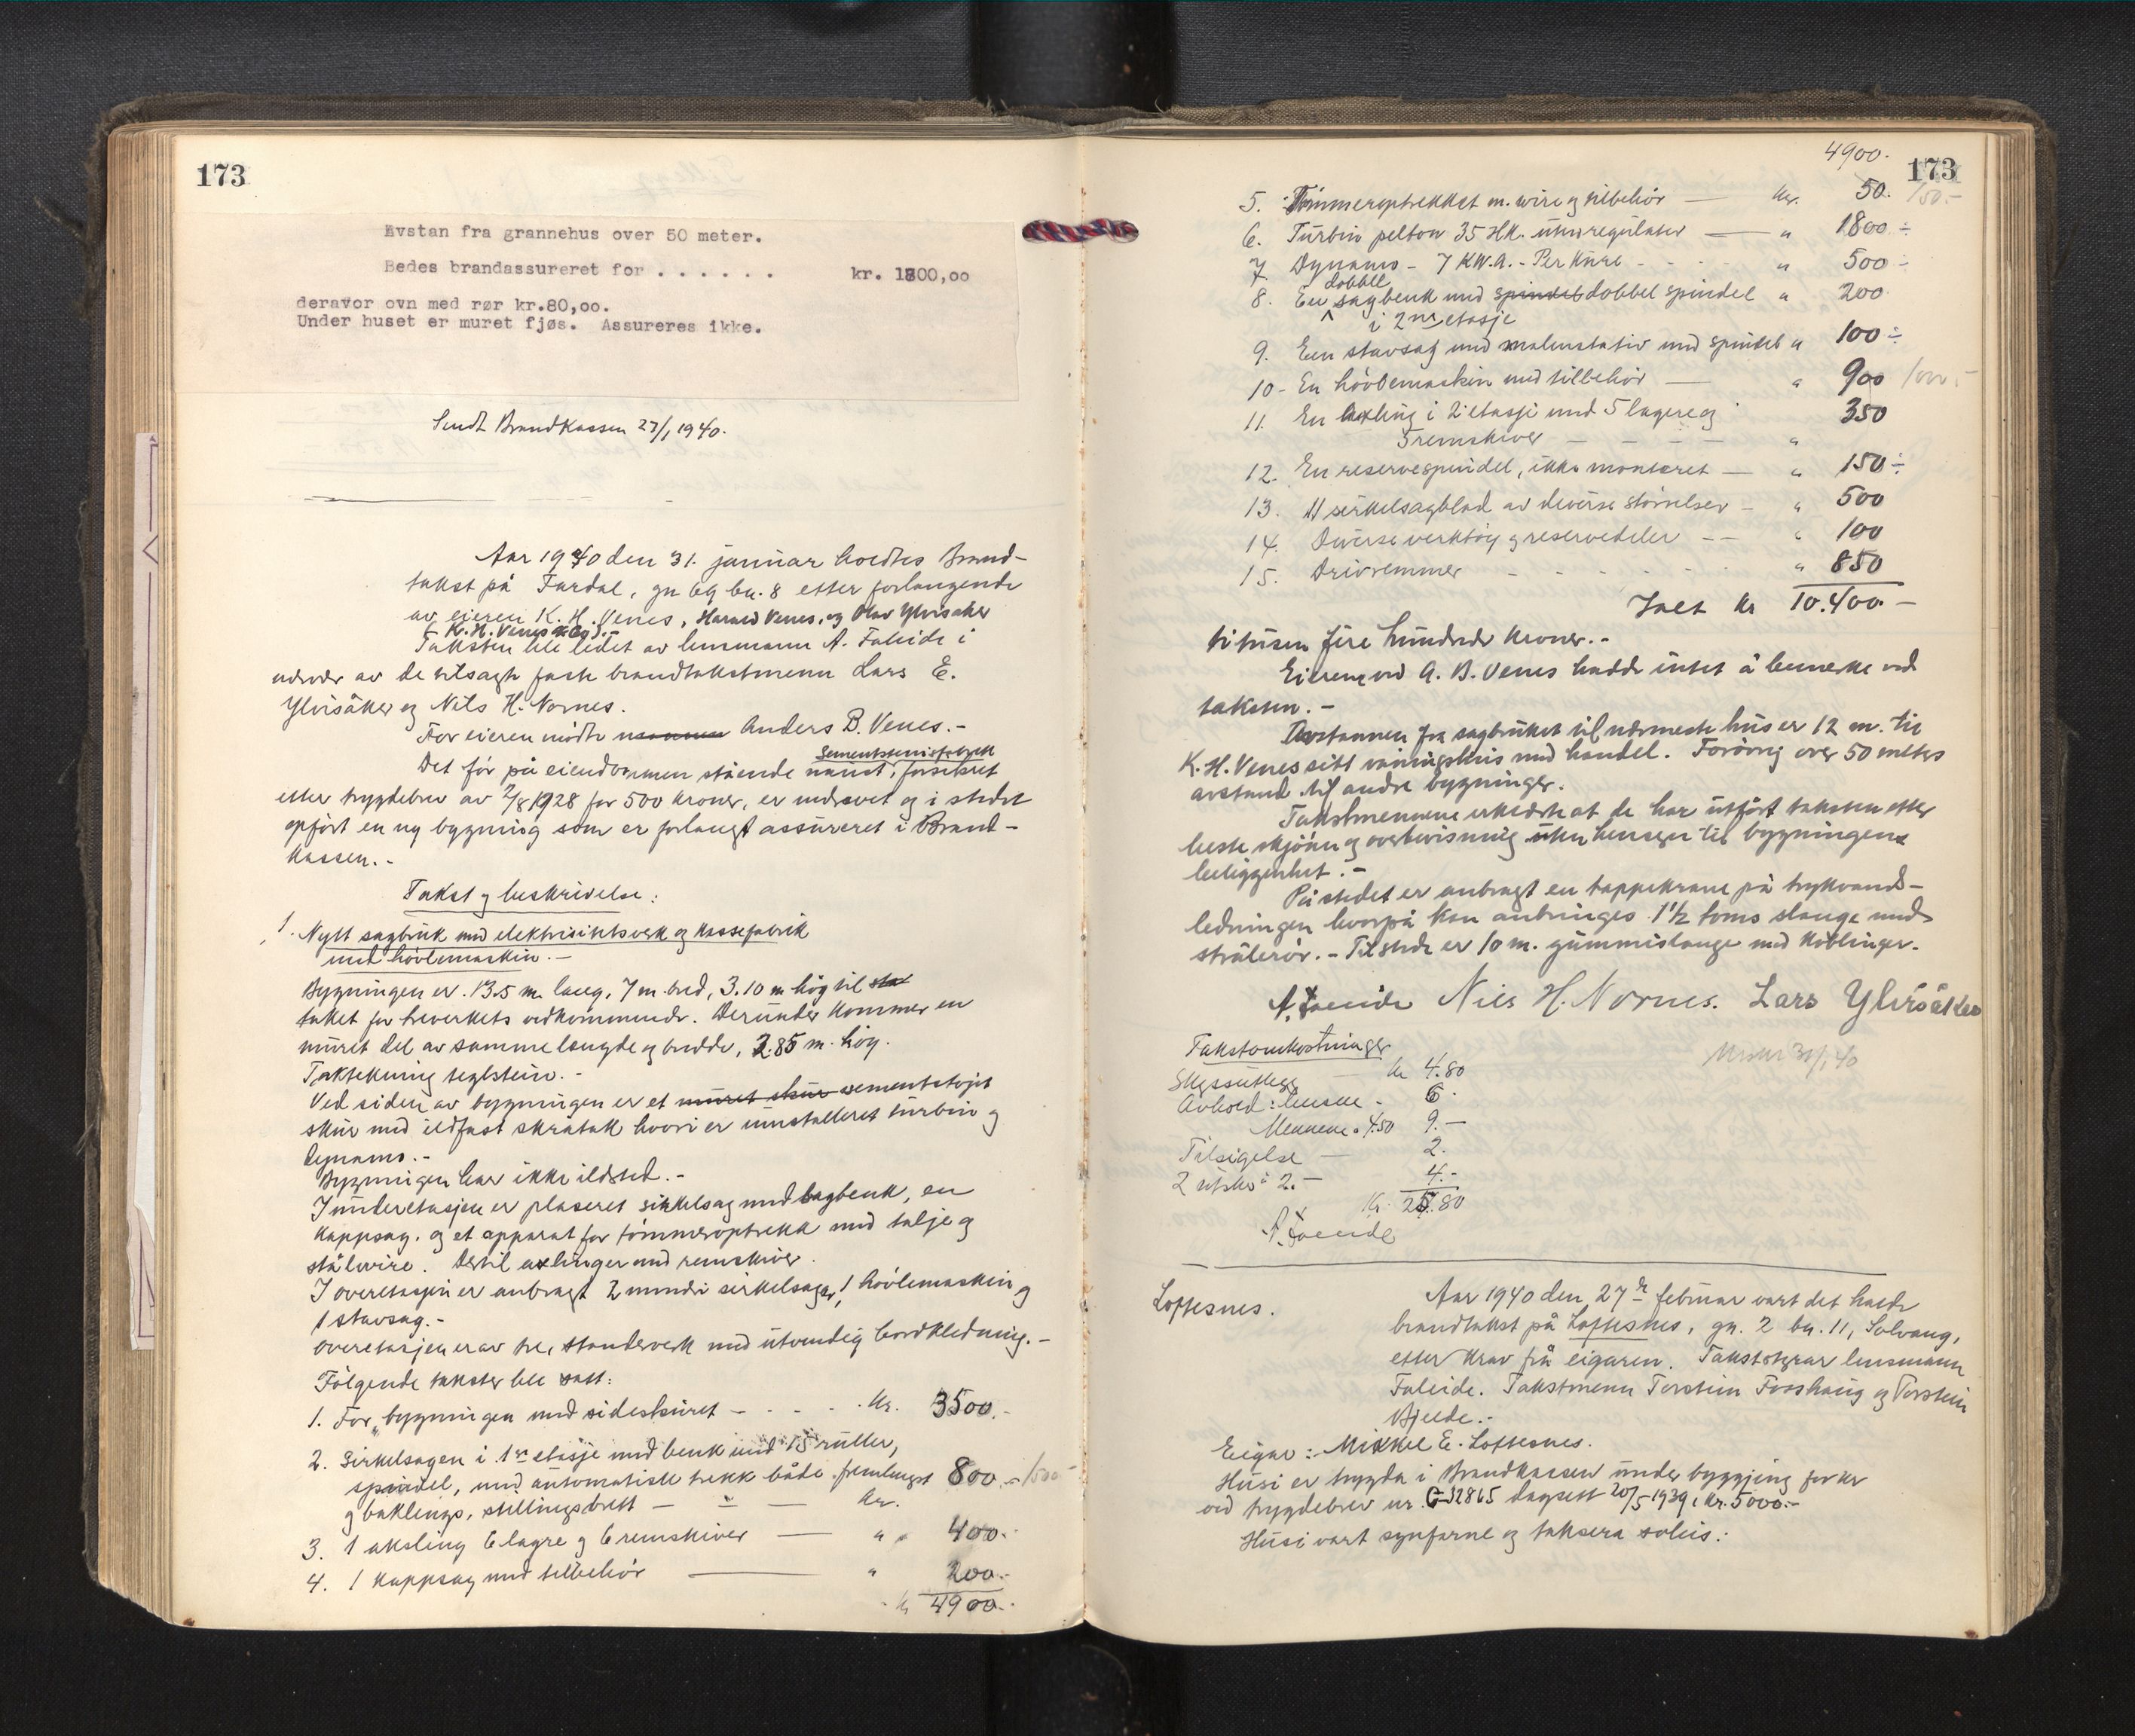 173
Avstan fra grannehus over 50 meter.
Bedes brandassureret for . . . . . . kr. 1800,oo
deravor ovn med rør kr.80,oo.
Under huset er muret fjøs. Assureres ikke.
Sendt Brandkassen 27/1 1940.
Aar 1940 den 31. januar holdtes Brand-
takst på Fardal, gn 69 bn. 8 etter forlangende
av eieren K. H. Venes, Harald Venes, og Olav Ylvisaker
(K. H. Venes & Co).
Taksten ble ledet av lensmann A. Faleide i
nærvær av de tilsagte faste brandtakstmenn Lars E.
Ylvisåker og Nils H. Nornes.
For eieren møtte Anders B. Venes.-
Sementstensfabrikk
Det før på eiendommen stående naust, forsikret
etter trygdebrev av 7/8 1928 for 500 kroner, er nedrevet og i stedet
opført en ny bygning som er forlangt assureret i Brand-
kassen.-
Takst og beskrivelse:
1. Nytt sagbruk med elektrisitetsverk og kassefabrik
med høvlemaskin.-
Bygningen er 13.5 m. lang, 7 m. bred, 3.10 m høg til
taket for treverkets vedkommende. Derunder kommer en
muret del av samme lengde og bredde, 2.85 m. høg.
Taktekning teglstein.-
Ved siden av bygningen er et muret skur sementstøpt
skur med ildfast skråtak hvori er innstalleret turbin og
dynamo.-
Bygningen har ikke ildsted.-
I underetasjen er plaseret sirkelsag med sagbenk, en
kappsag, og et apparat for tømmeroptrekk med talje og
stålwire. Dertil axlinger med remskiver.
I overetasjen er anbragt 2 mindre sirkelsager, 1 høvlemaskin og
1 stavsag.-
Overetasjen er av tre, standerverk med utvendig bordkledning.-
Følgende takster ble satt:
1. For bygningen med sideskuret - - - kr. 3500.-
2. Sirkelsagen i 1ste etasje med benk med 15 ruller,
spindel, med automatisk trekk både fremlengst 800.- 1500-
og baklengs, stillingsbrett - - - kr.
3. 1 aksling 6 lagre og 6 remskiver — " 400.-
4. 1 kappsag med tilbehør — " 200.-
kr 4900.-
173
4900.-
5. Tømmeroptrekket m. wire og tilbehør — kr. 50. 150.-
6. Turbin pelton 35 HK. uten regulator — " 1800 ÷
7. Dynamo - 7 KW.A. - Per Kure - - - " 500 ÷
dobbel
8. En sagbenk med spindel dobbel spindel " 200
i 2nen etasje
9. Een stavsag med malenstativ med spindel " 100 ÷
10- En høvlemaskin med tilbehør — " 900 1000.-
11. En axling i 2. etasje med 5 lagere og 350
5 remskiver - - - - "
12. En reservespindel, ikke monteret — " 150 ÷
13. 11 sirkelsagblad av diverse størrelser - " 500
14. Diverse verktøy og reservedeler - - " 100
15. Drivremmer - - - - - " 850
Ialt kr 10.400.-
titusen fire hundrede kroner.-
Eieren ved A. B. Venes hadde intet å bemerke ved
taksten.-
Avstannen fra sagbruket til nærmeste hus er 12 m. til
K. H. Venes sitt våningshus med handel. Forøvrig over 50 meters
avstand til andre bygninger.
Takstmennene erklærte at de har utført taksten etter
beste skjønn og overbevisning uten hensyn til bygningens
beliggenhet.-
På stedet er anbragt en tappekrane på trykvands-
ledningen hvorpå kan anbringes 1 1/2 toms slange med
strålerør.- Tilstede er 10 m. gummislange med koblinger.
A. Faleide Nils H. Nornes. Lars Ylvisåker
Takstomkostninger
Skyssutlegg — kr 4.80
Avhold: lensm. - 6.
Mennene a 4.50 9.-
Tilsigelse — 2.
2 utskr. a 2.- 4.-
Kr. 25.80
A. Faleide
31/1 40
Loftesnes.
Aar 1940 den 27de februar vart det halde
brandtakst på Loftesnes, gn. 2 bn. 11, Solvang,
etter krav frå eigaren. Takststyrar lensmann
Faleide. Takstmenn Torstein Foshaug og Torstein
Bjelde.-
Eigar: Mikkel E. Loftesnes.
Husi er trygda i Brandkassen under byggjing for kr
ved trygdebrev nr. G 32865 dagsett 20/5 1939, kr. 5000.-
Husi vart synfarne og taksera soleis: